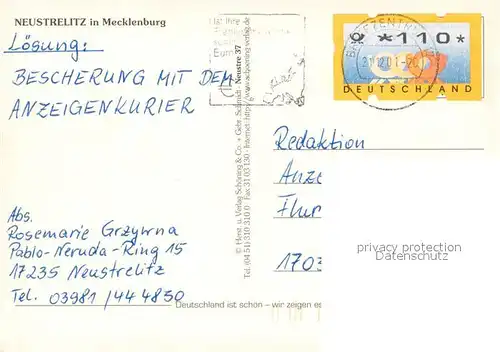 NEUSTRELITZ in Mecklenburg
Lösung:
BESCHERUNG MIT DEM
ANZEIGENKURIER
Abs.
Rosemarie Grzywna
Pablo-Neruda-Ring 15
17235 Neustrelitz
Tel. 03981/444850
Deutschland ist schön – wir zeigen es
© Herst. u. Verlag Schöning & Co. + Gebr. Schmidt · Neustre 37
Tel. (04 51) 310 310 0 Fax 31 03 130 · Internet: http://www.schoening-verlag.de
Ist Ihre
*110*
DEUTSCHLAND
BRIEFZENTRUM
Redaktion
Anze
Flur
1703
privacy protection
Datenschutz